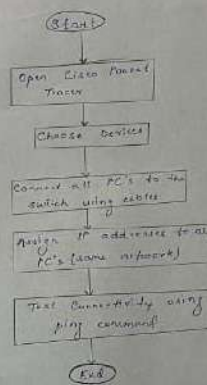 Start
Open Cisco Packet
Tracer
Choose Devices
Connect all PC's to the
switch using cables
Assign IP addresses to all
PC's (same network)
Test Connectivity using
ping command
End